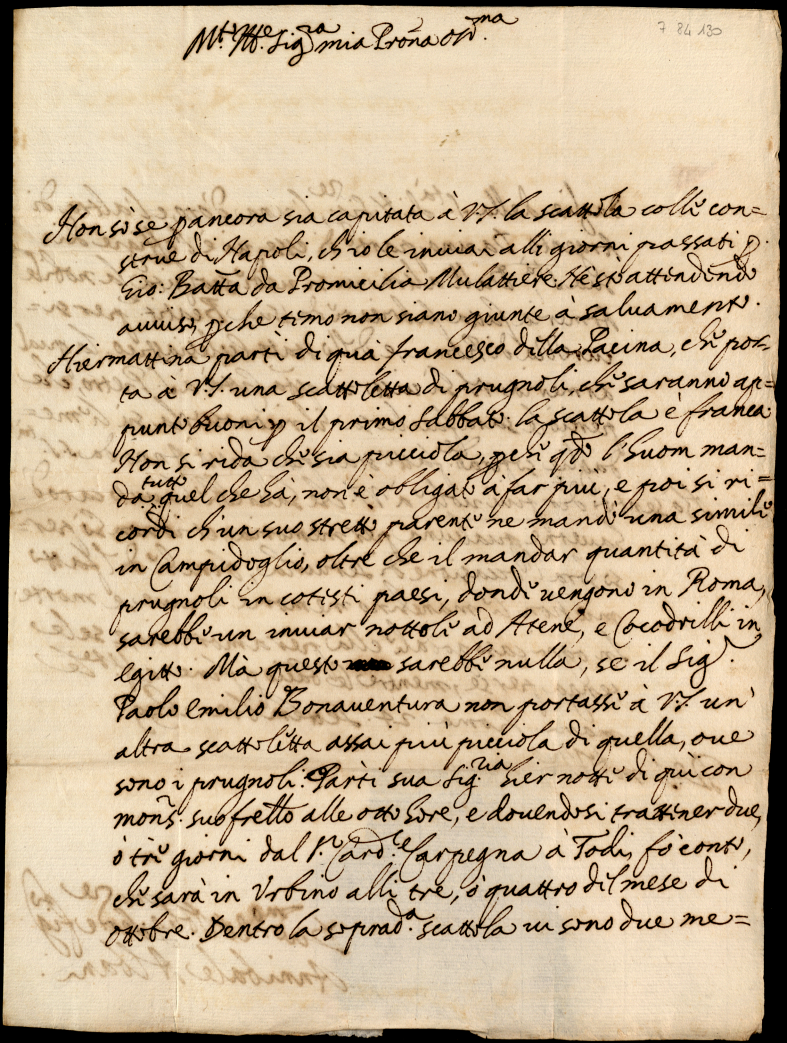 7 84 130
M.to Ill.re Sig.ra mia Pro͠na oss.ma
Non sò se p ancora sia capitata à V.S. la scattola colle con=
serue di Napoli, ch'io le inuiai alli giorni passati p.
Gio: Batt͠a da Promicilia Mulattiere. Ne stò attendendo
auuiso, p che temo non siano giunte à saluamento.
Hiermattina partì di quà francesco della Pacina, che por-
ta à V.S. una scattoletta di prugnoli, che saranno ap=
punto buoni p il primo sabbato. la scattola è franca
Non si rida che sia picciola, p che q͠do l'huom man=
da tutto quel che hà, non è obligato à far più, e poi si ri=
cordi ch'un suo stretto parente ne mandò una simile
in Campidoglio, oltre che il mandar quantità di
prugnoli in cotesti paesi, donde uengono in Roma,
sarebbe un inuiar nottole ad Atene, e Cocodrilli in
egitto. Mà questo sarebbe nulla, se il Sig.r
Paolo emilio Bonauentura non portasse à V.S. un'
altra scattoletta assai più picciola di quella, oue
sono i prugnoli. Partì sua Sig.ria hier notte di quì con
mons. suo fr͠ello alle otto hore, e douendosi trattener due,
ò tre giorni dal S.r Card.le Carpegna à Todi, fò conto,
che sarà in Vrbino alli tre, ò quattro del mese di
ottobre. Dentro la soprad.a scattola ui sono due me=
Annibale Albani